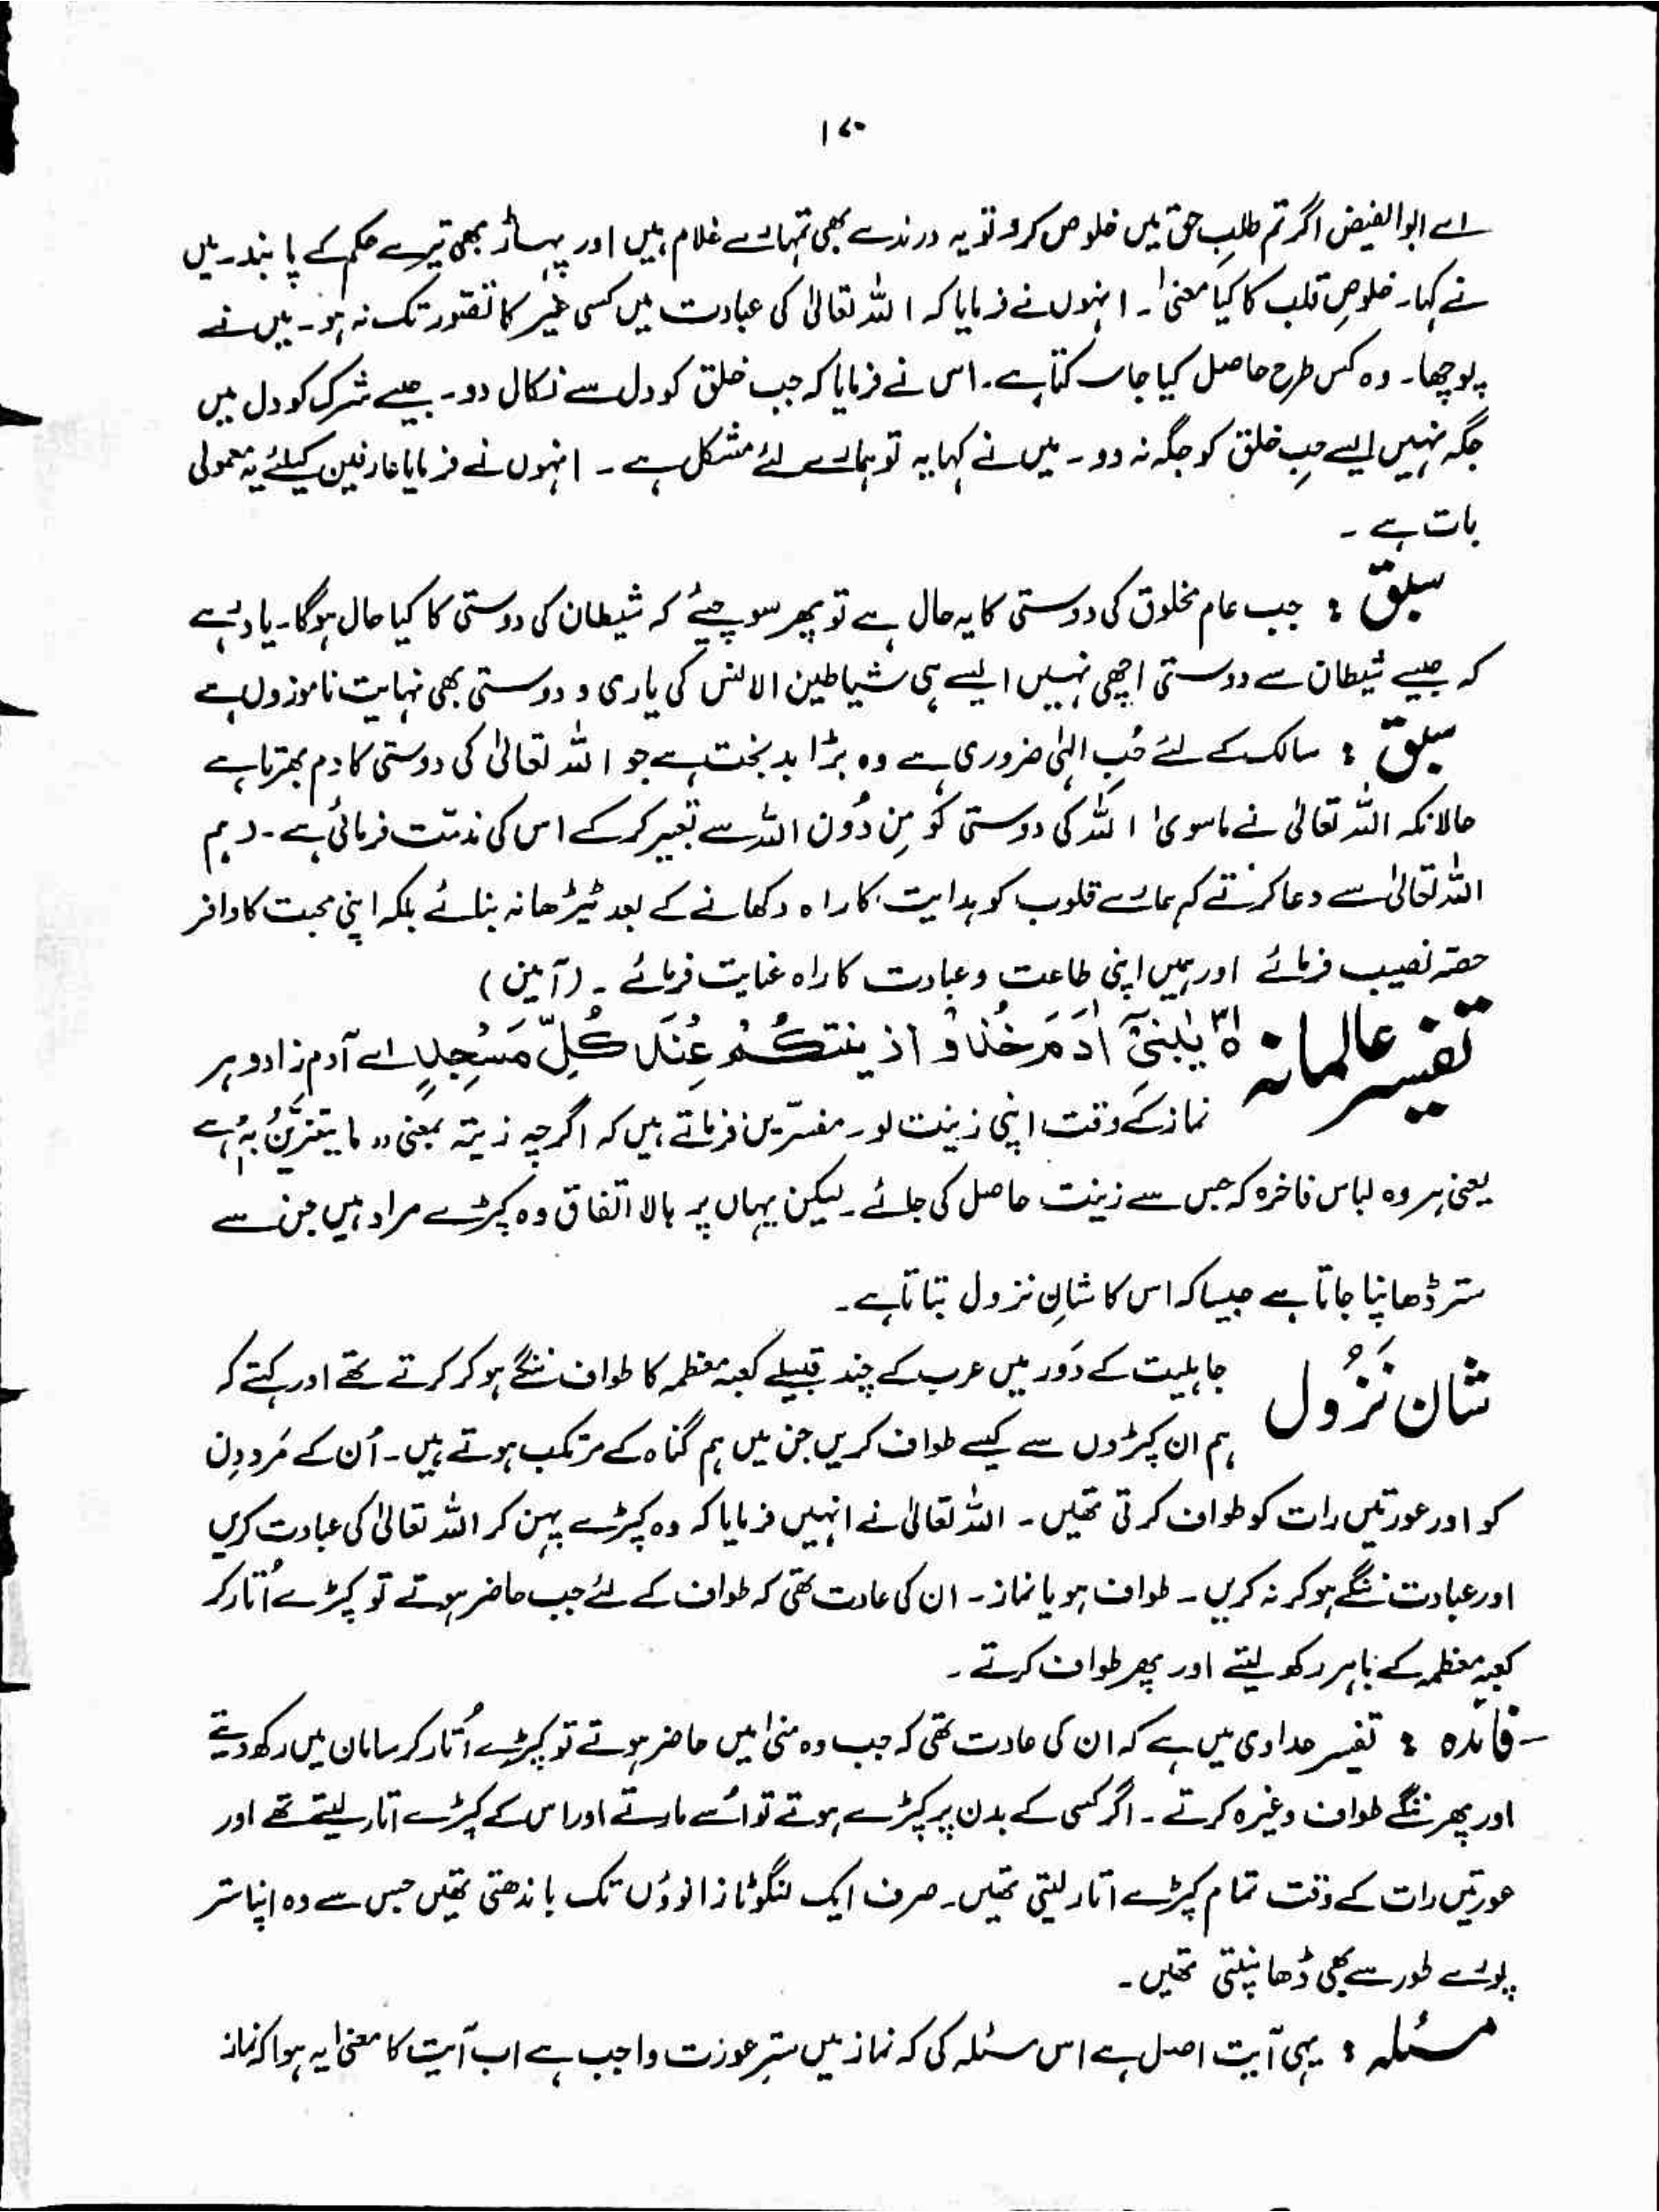 ۱۷۰
اے ابوالفیض اگر تم طلبِ حق میں خلوص کرو تو یہ درندے بھی تمہارے غلام ہیں اور پہاڑ بھی تیرے حکم کے پابند۔ میں
نے کہا۔ خلوصِ قلب کا کیا معنیٰ۔ انہوں نے فرمایا کہ اللہ تعالیٰ کی عبادت میں کسی غیر کا تصور تک نہ ہو۔ میں نے
پوچھا۔ وہ کس طرح حاصل کیا جا سکتا ہے۔ اس نے فرمایا کہ حب خلق کو دل سے نکال دو۔ جیسے شرک کو دل میں
جگہ نہیں ایسے حبِ خلق کو جگہ نہ دو۔ میں نے کہا یہ تو ہمارے لئے مشکل ہے۔ انہوں نے فرمایا عارفین کیلئے یہ معمولی
بات ہے۔
سبق : جب عام مخلوق کی دوستی کا یہ حال ہے تو پھر سوچیئے کہ شیطان کی دوستی کا کیا حال ہوگا۔ یاد رہے
کہ جیسے شیطان سے دوستی اچھی نہیں ایسے ہی شیاطین الانس کی یاری و دوستی بھی نہایت ناموزوں ہے
سبق : سالک کے لئے حُبِ الٰہی ضروری ہے وہ بڑا بدبخت ہے جو اللہ تعالیٰ کی دوستی کا دم بھرتا ہے
حالانکہ اللہ تعالیٰ نے ماسویٰ اللہ کی دوستی کو مِن دُون اللہ سے تعبیر کر کے اس کی مذمت فرمائی ہے۔ (ہم
اللہ تعالیٰ سے دعا کرتے کہ ہمارے قلوب کو ہدایت کا راہ دکھانے کے بعد ٹیڑھا نہ بنائے بلکہ اپنی محبت کا وافر
حصہ نصیب فرمائے اور ہمیں اپنی طاعت و عبادت کا راہ عنایت فرمائے۔ (آمین)
تفسیر عالمانہ ۳۱ یٰبَنِیْٓ اٰدَمَ خُذُوْا زِیْنَتَکُمْ عِنْدَ کُلِّ مَسْجِدٍ اے آدم زادو ہر
نماز کے وقت اپنی زینت لو۔ مفسّرین فرماتے ہیں کہ اگرچہ زینۃ بمعنی ،، ما یتزیّنُ بہٖ ہے
یعنی ہر وہ لباس فاخرہ کہ جس سے زینت حاصل کی جائے۔ لیکن یہاں پر بالاتفاق وہ کپڑے مراد ہیں جن سے
ستر ڈھانپا جاتا ہے جیسا کہ اس کا شانِ نزول بتاتا ہے۔
شان نَزُول جاہلیت کے دَور میں عرب کے چند قبیلے کعبہ معظمہ کا طواف ننگے ہو کر کرتے تھے اور کہتے کہ
ہم ان کپڑوں سے کیسے طواف کریں جن میں ہم گناہ کے مرتکب ہوتے ہیں۔ اُن کے مَرد دِن
کو اور عورتیں رات کو طواف کرتی تھیں۔ اللہ تعالیٰ نے انہیں فرمایا کہ وہ کپڑے پہن کر اللہ تعالیٰ کی عبادت کریں
اور عبادت ننگے ہو کر نہ کریں۔ طواف ہو یا نماز۔ ان کی عادت تھی کہ طواف کے لئے جب حاضر ہوتے تو کپڑے اُتار کر
کعبہ معظمہ کے باہر رکھ لیتے اور پھر طواف کرتے۔
فائدہ : تفسیر حدادی میں ہے کہ ان کی عادت تھی کہ جب وہ منیٰ میں حاضر ہوتے تو کپڑے اُتار کر سامان میں رکھ دیتے
اور پھر ننگے طواف وغیرہ کرتے۔ اگر کسی کے بدن پر کپڑے ہوتے تو اُسے مارتے اور اس کے کپڑے اتار لیتے تھے اور
عورتیں رات کے وقت تمام کپڑے اتار لیتی تھیں۔ صرف ایک لنگوٹا زانوؤں تک باندھتی تھیں جس سے وہ اپنا ستر
پورے طور سے بھی ڈھانپتی تھیں۔
مسئلہ : یہی آیت اصل ہے اس مسئلہ کی کہ نماز میں سترِ عورت واجب ہے اب آیت کا معنیٰ یہ ہوا کہ نماز